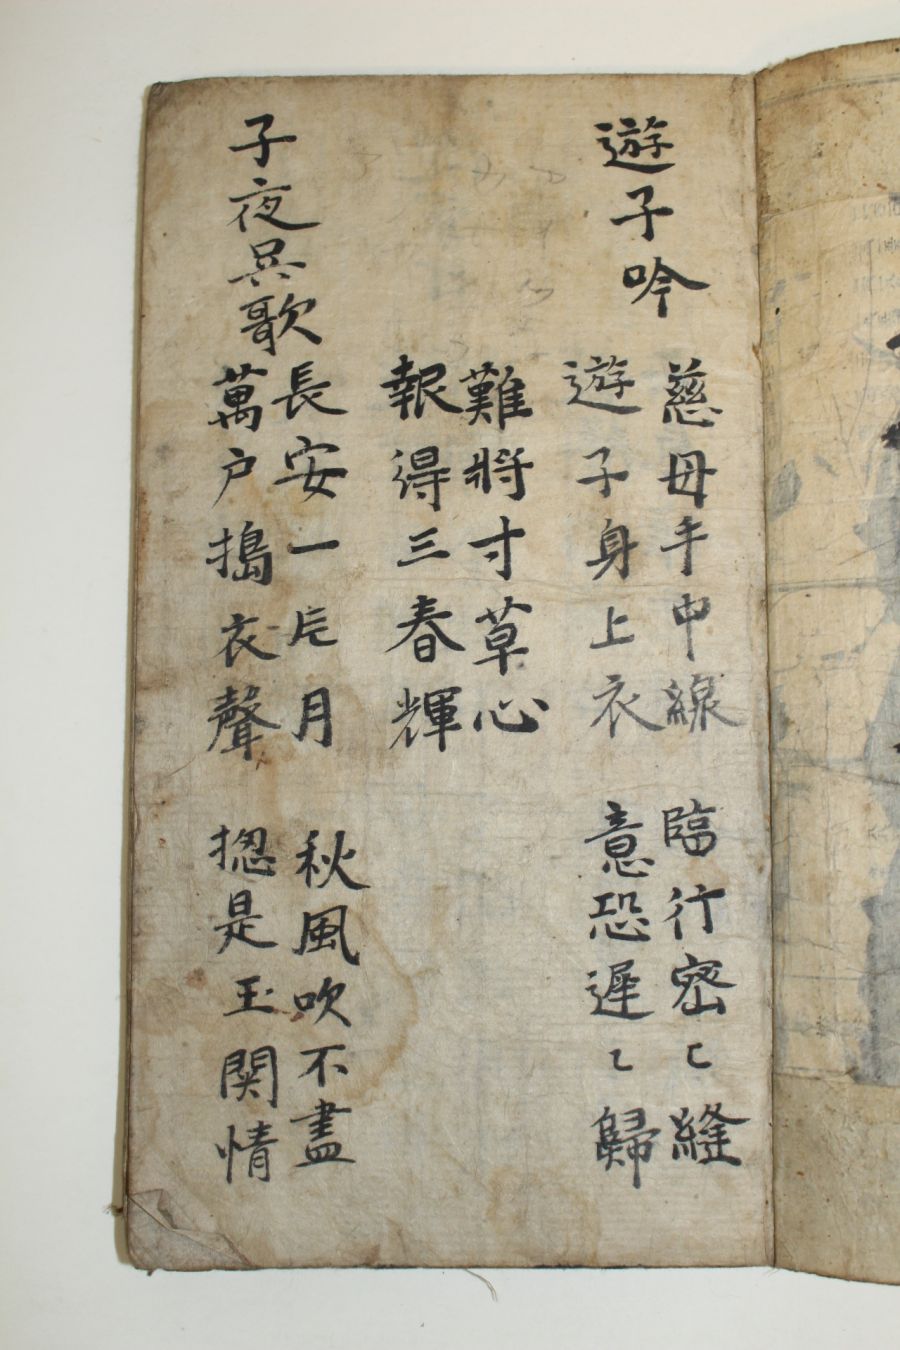 遊子吟
慈母手中線 臨行密〻縫
遊子身上衣 意恐遲〻歸
難將寸草心
報得三春輝
子夜呉歌
長安一片月 秋風吹不盡
萬戶搗衣聲 摠是玉関情